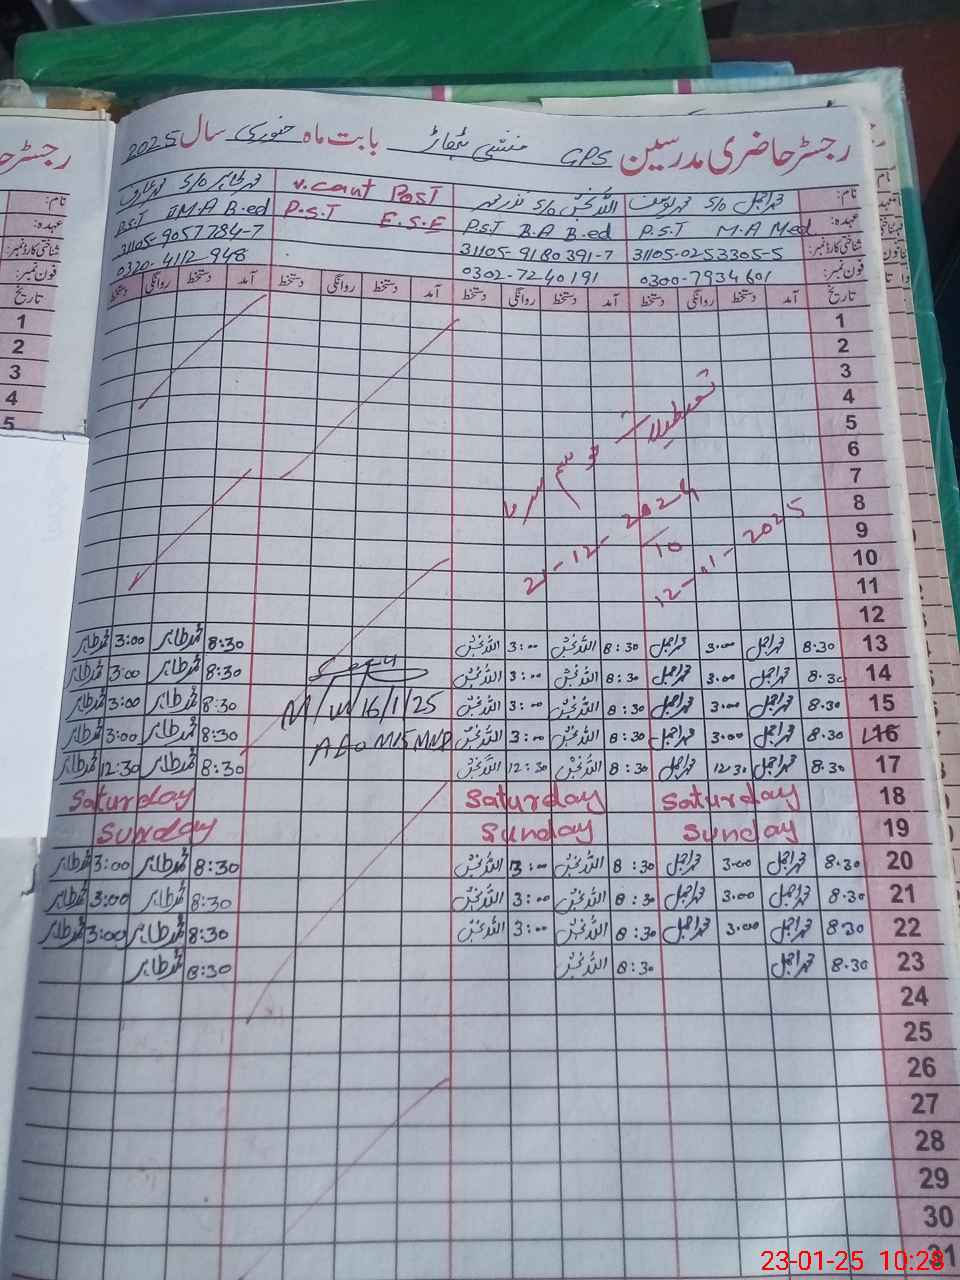 رجسٹر حاضری مدرسین GPS منشی بابت ماہ جنوری سال 2025
نام: محمد اجمل S/O محمد یوسف اللہ بخش S/O نذر محمد V.cant Post محمد طاہر S/O محمد عارف
عہدہ: P.S.T M.A M.ed P.S.T B.A B.ed P.S.T E.S.E P.S.T M.A B.ed
شناختی کارڈ نمبر: 31105-0253305-5 31105-9180391-7 31105-9057784-7
فون نمبر: 0300-7934601 0302-7240191 0320-4112948
تاریخ آمد دستخط روانگی دستخط آمد دستخط روانگی دستخط آمد دستخط روانگی دستخط آمد دستخط روانگی دستخط
1
2
3
4
5
6
7
8
9
10
11
12
تعطیلات موسم سرما
21-12-2024
to
12-01-2025
13 8.30 محمد اجمل 3.00 محمد اجمل 8:30 اللہ بخش 3:00 اللہ بخش 8:30 محمد طاہر 3:00 محمد طاہر
14 8.30 محمد اجمل 3.00 محمد اجمل 8:30 اللہ بخش 3:00 اللہ بخش 8:30 محمد طاہر 3:00 محمد طاہر
15 8.30 محمد اجمل 3.00 محمد اجمل 8:30 اللہ بخش 3:00 اللہ بخش 16/1/25 8:30 محمد طاہر 3:00 محمد طاہر
16 8.30 محمد اجمل 3.00 محمد اجمل 8:30 اللہ بخش 3:00 اللہ بخش 8:30 محمد طاہر 3:00 محمد طاہر
17 8.30 محمد اجمل 12.30 محمد اجمل 8:30 اللہ بخش 12:30 اللہ بخش 8:30 محمد طاہر 12:30 محمد طاہر
18 Saturday Saturday Saturday
19 Sunday Sunday Sunday
20 8.30 محمد اجمل 3.00 محمد اجمل 8:30 اللہ بخش 3:00 اللہ بخش 8:30 محمد طاہر 3:00 محمد طاہر
21 8.30 محمد اجمل 3.00 محمد اجمل 8:30 اللہ بخش 3:00 اللہ بخش 8:30 محمد طاہر 3:00 محمد طاہر
22 8.30 محمد اجمل 3.00 محمد اجمل 8:30 اللہ بخش 3:00 اللہ بخش 8:30 محمد طاہر 3:00 محمد طاہر
23 8.30 محمد اجمل 8:30 اللہ بخش 8:30 محمد طاہر
24
25
26
27
28
29
30
31
23-01-25 10:28